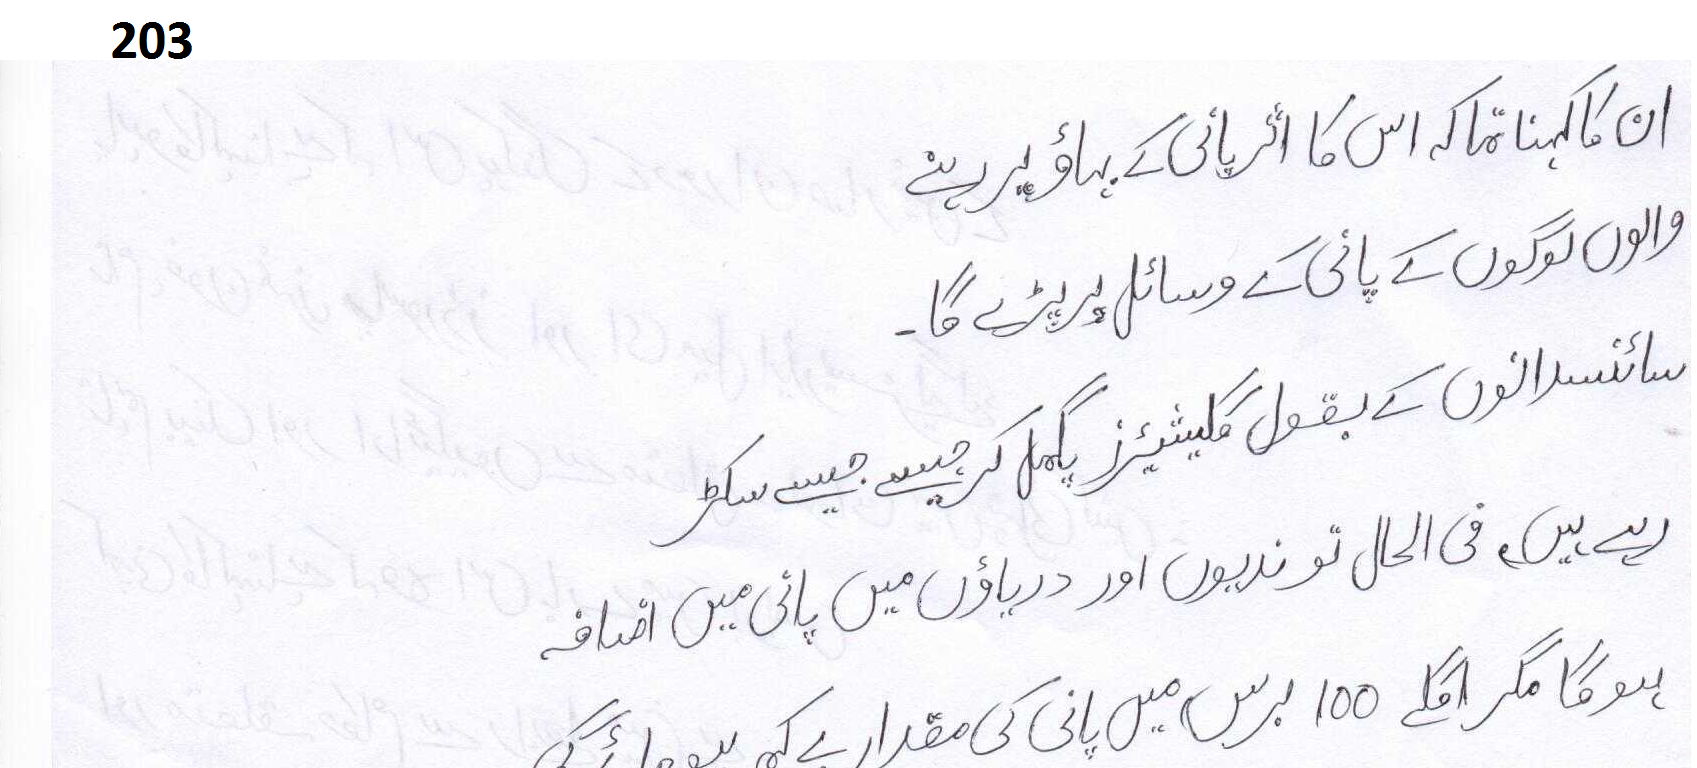 203
ان کا کہنا تھا کہ اس کا اثر پانی کے بہاؤ پر رہنے
والوں لوگوں کے پانی کے وسائل پر پڑے گا۔
سائنسدانوں کے بقول گلیشیئرز پگھل کر جیسے جیسے سکڑ
رہے ہیں، فی الحال تو ندیوں اور دریاؤں میں پانی میں اضافہ
ہوگا مگر اگلے 100 برس میں پانی کی مقدار بے ہو جائے گی